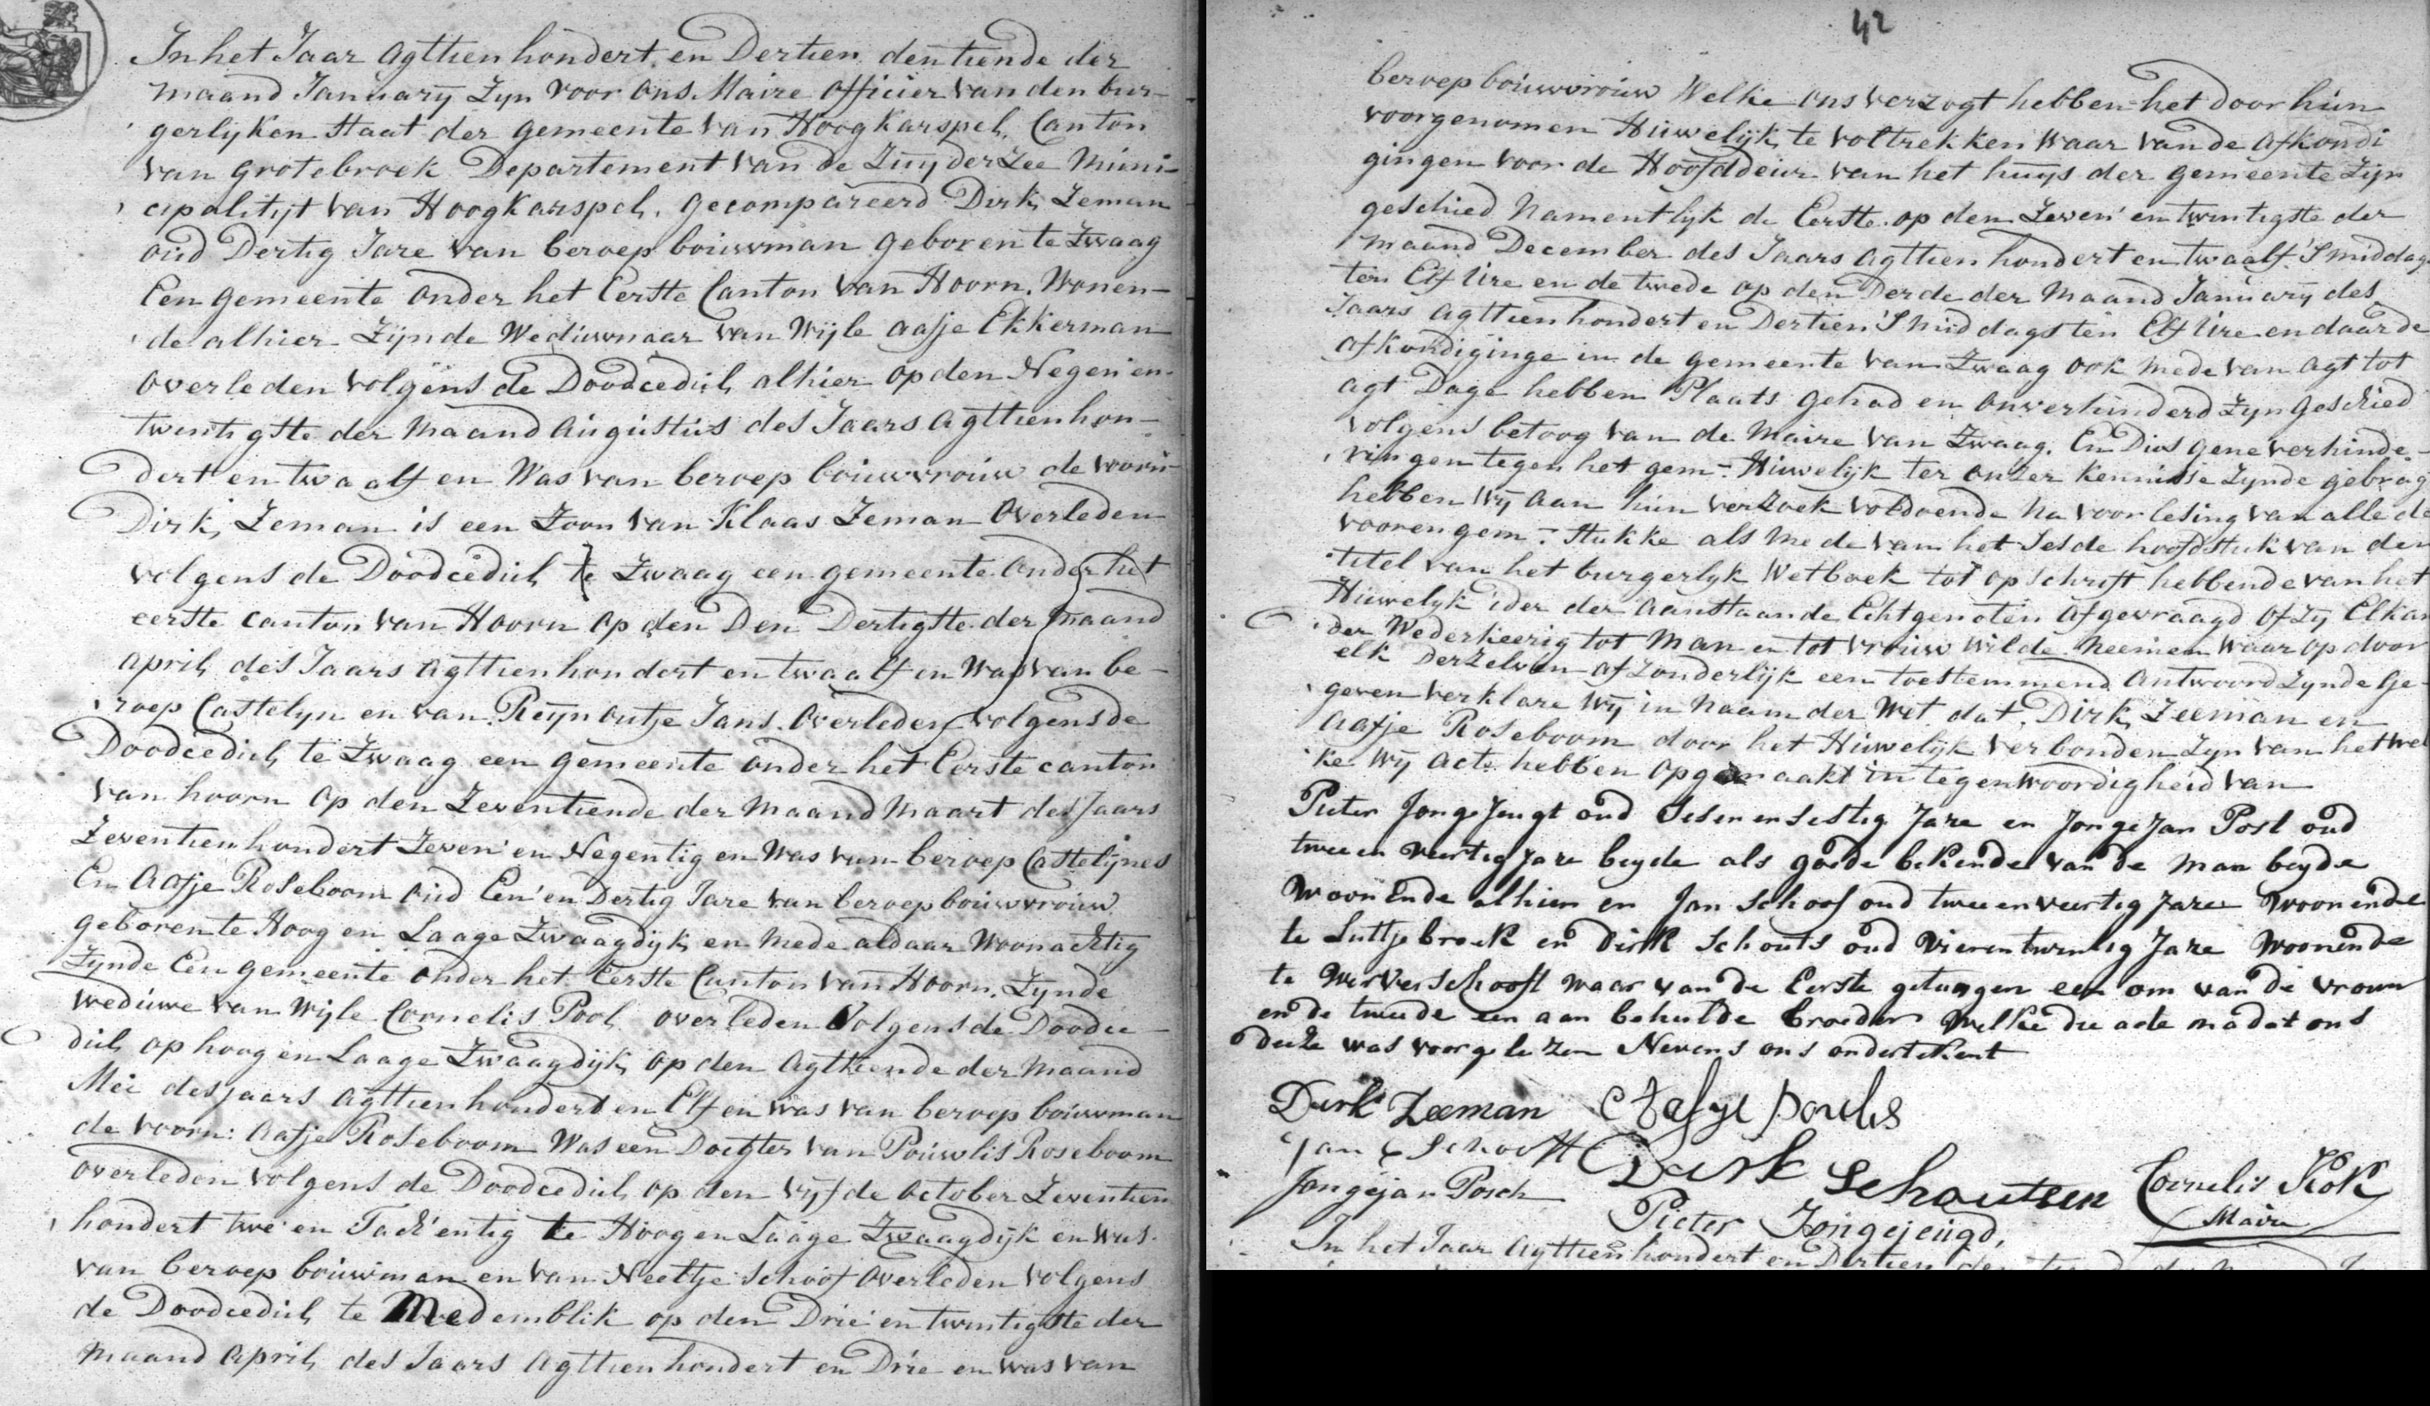 In het Jaar Agttien hondert en Dertien den tiende der
maand January Zyn voor ons Maire officier van den bur-
gerlyken Staat der gemeente van Hoogkarspel, Canton
van Grotebroek Departement van de Zuyder Zee Muni-
cipalityt van Hoogkarspel, gecompareerd Dirk Zeman
oud Dertig Jare van beroep bouwman geboren te Zwaag
Een gemeente onder het Eerste Canton van Hoorn, Wonen-
de alhier Zijnde Weduwnaar van Wijle Aafje Ekkerman
overleden volgens de Doodcedul alhier op den Negen en
twintigste der maand Augustus des Jaars Agttienhon-
dert en twaalf en Was van beroep bouwvrouw de voorn
Dirk Zeman is een Zoon van Klaas Zeman Overleden
volgens de Doodcedul te Zwaag een gemeente onder het
eerste Canton van Hoorn op den Den Dertigste der maand
April des Jaars Agttienhondert en twaalf en Was van be-
roep Castelyn en van Reynoutje Jans Overleden volgens de
Doodcedul te Zwaag een gemeente onder het Eerste canton
van hoorn op den Zeventiende der maand Maart des Jaars
Zeventienhondert Zeven en Negentig en Was van beroep Castelijnes
En Aafje Roseboom oud Een en Dertig Jare van beroep bouwvrouw
geboren te Hoog en Laage Zwaagdijk en mede aldaar Woonachtig
Zynde Een gemeente onder het Eerste Canton van Hoorn, Zynde
weduwe van Wijle Cornelis Pool overleden Volgens de Doodce-
dul op hoog en Laage Zwaagdijk op den Agttiende der maand
Mei des jaars Agttienhondert en Elf en was van beroep bouwman
de voorn: Aafje Roseboom Was een Dochter van Pouwlis Roseboom
overleden volgens de Doodcedul op den vijfde October Zeventien
hondert twe en Tachentig te Hoog en Laage Zwaagdijk en was
van beroep bouwman en van Neeltje Schoof Overleden volgens
de Doodcedul te Medemblik op den Drie en twintigste der
Maand April des Jaars Agttienhondert en Drie en was van
42
beroep bouwvrouw Welke ons verzogt hebben het door hun
voorgenomen Huwelijk te voltrekken Waar van de Afkondi
gingen voor de Hoofddeur van het huys der gemeente Zijn
geschied Namentlyk de Eerste op den Zeven en twintigste der
maand December des Jaars Agttien hondert en twaalf 's middags
ten Elf Ure en de twede op den Derde der Maand January des
Jaars Agttienhondert en Dertien 's middags ten Elf Ure en daar de
Afkondiginge in de gemeente van Zwaag ook mede van Agt tot
Agt Dage hebben Plaats gehad en onverhinderd Zyn geschied
volgens betoog van de Maire van Zwaag. En Dus gene verhinde-
ringen tegen het gem: Huwelijk ter onzer kennisse Zynde gebrag
hebben Wij Aan hun verzoek voldoende Na voorlesing van alle de
voorengem: Stukke als mede van het Sesde hoofdstuk van den
titel van het burgerlyk Wetboek tot opschrift hebbende van het
Huwelijk ider der Aanstaande Echtgenoten Afgevraagd of Zy Elkan
der Wederkeerig tot Man en tot vrouw wilde Neemen Waar op door
elk Derzelven afzonderlijk een toestemmend Antwoord Zynde ge-
geven verklare Wy in Naam der Wet dat Dirk Zeeman en
Aafje Roseboom door het Huwelijk verbonden Zyn van het wel
ke Wy Acte hebben opgemaakt in tegenwoordigheid van
Pieter Jongejeugt oud Sesenensestig Jare en Jonge Jan Post oud
twee en veertig jare beyde als goede bekende van de man beyde
Woonende alhier en Jan Schoof oud twee en veertig jare Woonende
te Luttjebroek en Dirk Schouts oud vierentwintig Jare Woonende
te Wervershooft Waar van de Eerste getuygen een om van de vrouw
en de tweede een aan behulde broeder Welke die acte na dat ons
deeze was voorgelezen Nevens ons ondertekent
Dirk Zeeman Aefye pouls
Jan Schooft Dirk Schoutsen Cornelis Kok
Jongejan Posch Pieter Jongejeugd, Maire
In het Jaar Agttien hondert en Dertien